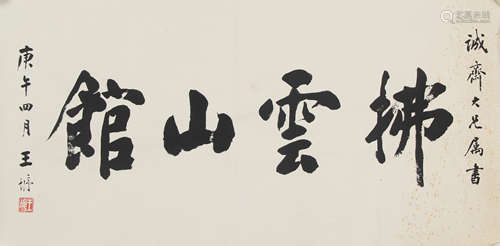 誠齊大兄属書
拂雲山館
庚午四月 王㣥